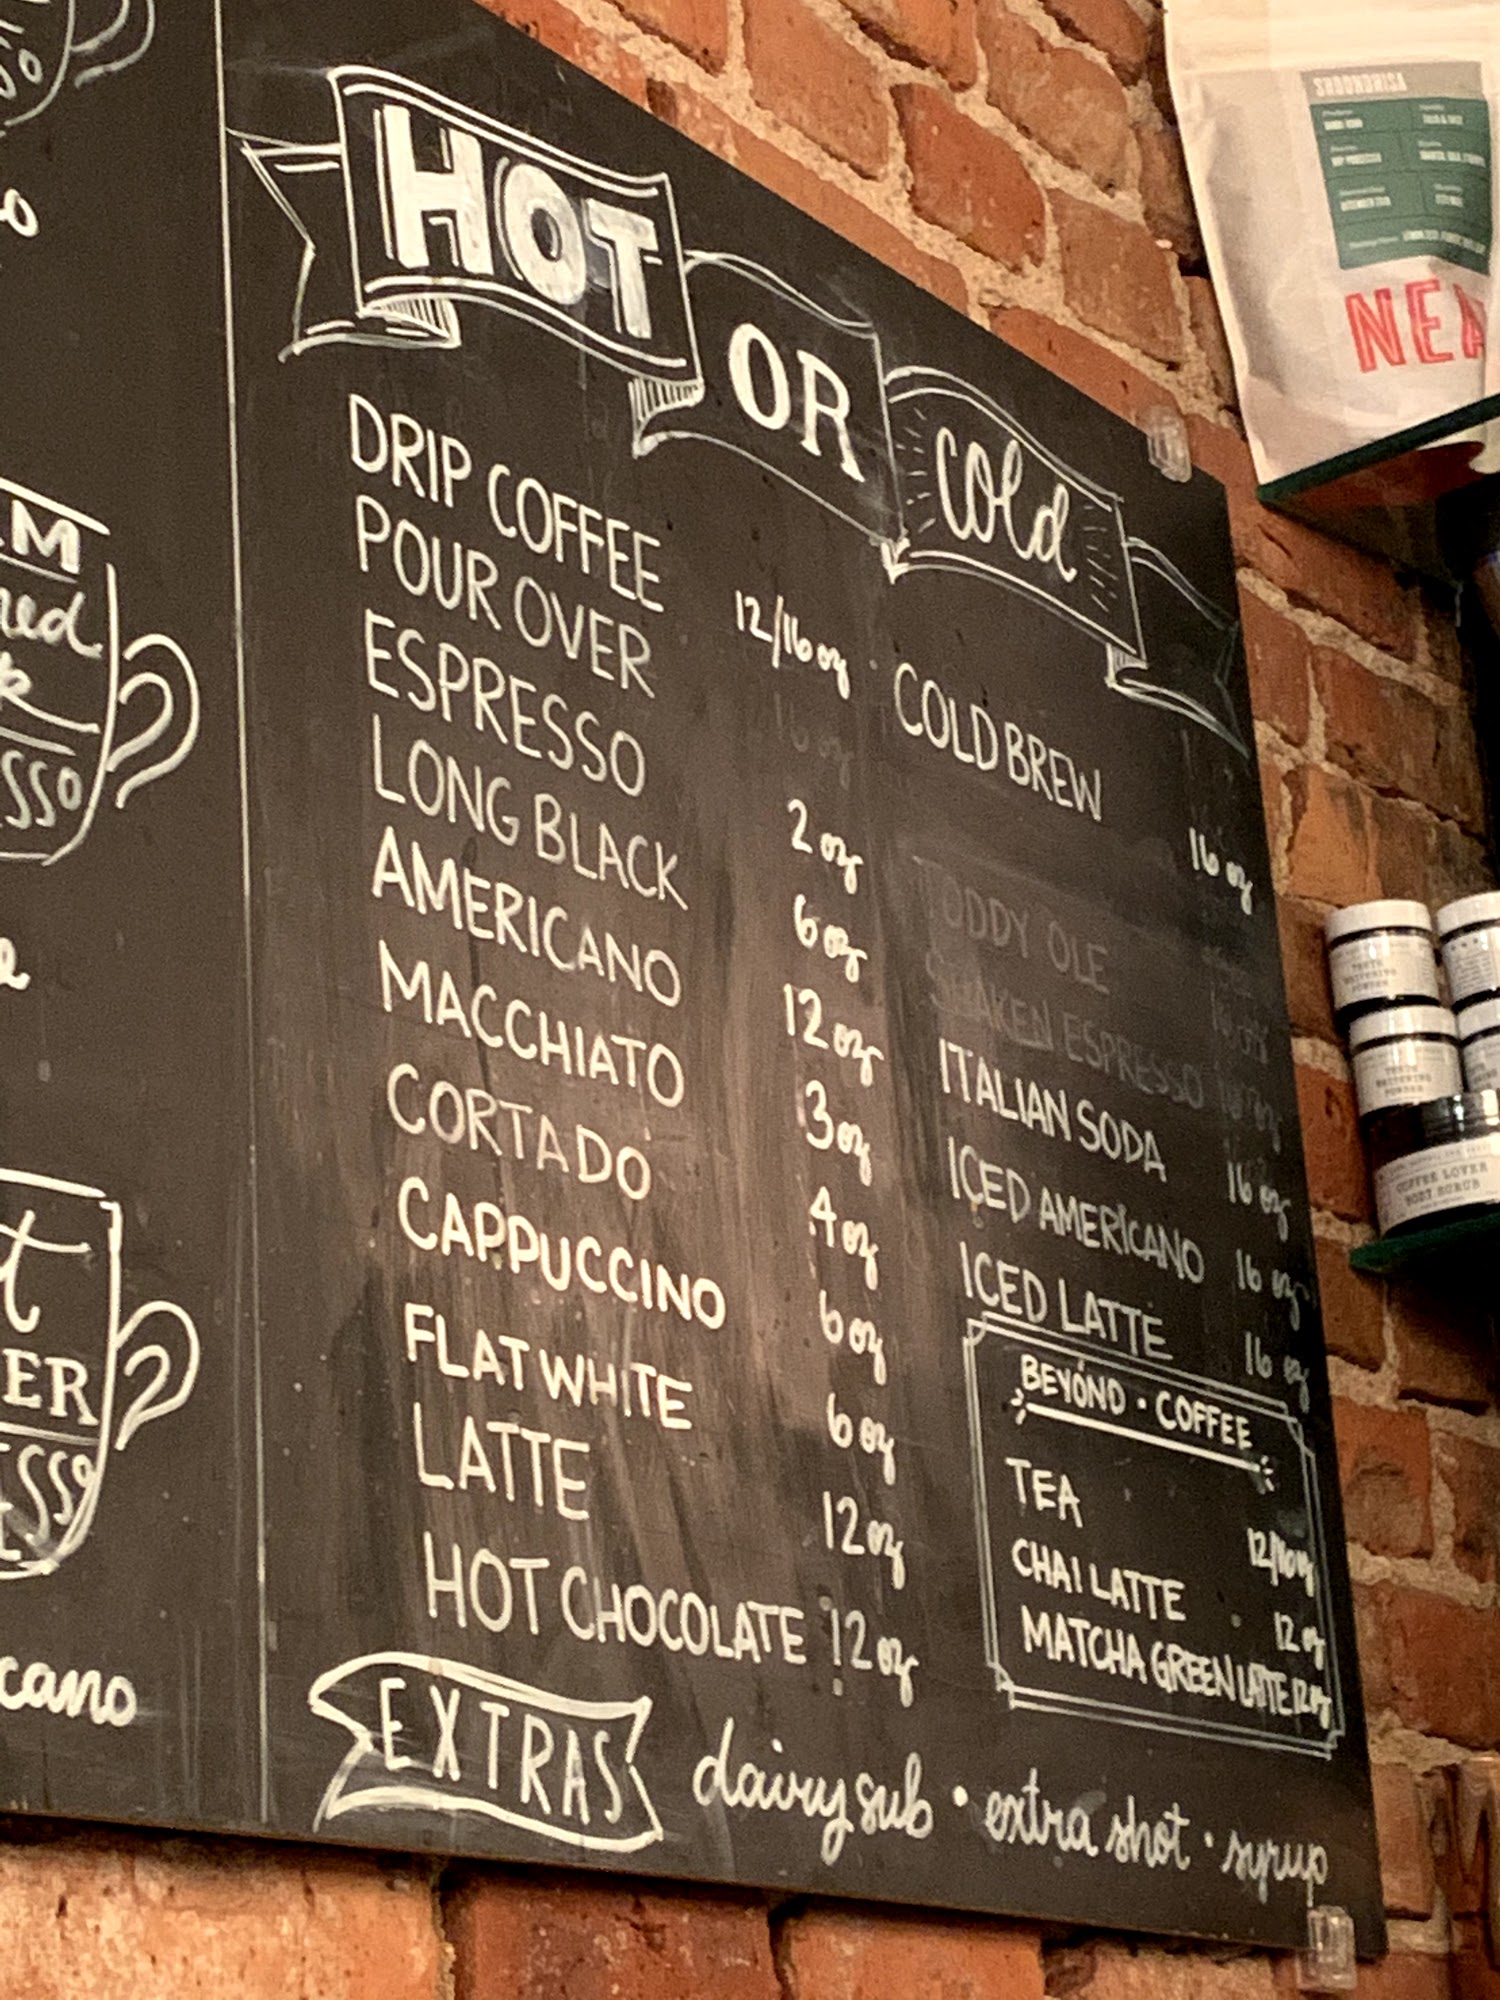 HOT OR Cold
DRIP COFFEE 12/16 oz
POUR OVER 16 oz
ESPRESSO 2 oz
LONG BLACK 6 oz
AMERICANO 12 oz
MACCHIATO 3 oz
CORTADO 4 oz
CAPPUCCINO 6 oz
FLAT WHITE 6 oz
LATTE 12 oz
HOT CHOCOLATE 12 oz
COLD BREW 16 oz
TODDY OLE
SHAKEN ESPRESSO
ITALIAN SODA 16 oz
ICED AMERICANO 16 oz
ICED LATTE 16 oz
BEYOND · COFFEE
TEA 12/16 oz
CHAI LATTE 12 oz
MATCHA GREEN LATTE 12 oz
EXTRAS dairy sub · extra shot · syrup
M
red
k
sso
ER
cano
NEA
TEETH
WHITENING
POWDER
COFFEE LOVER
BODY SCRUB